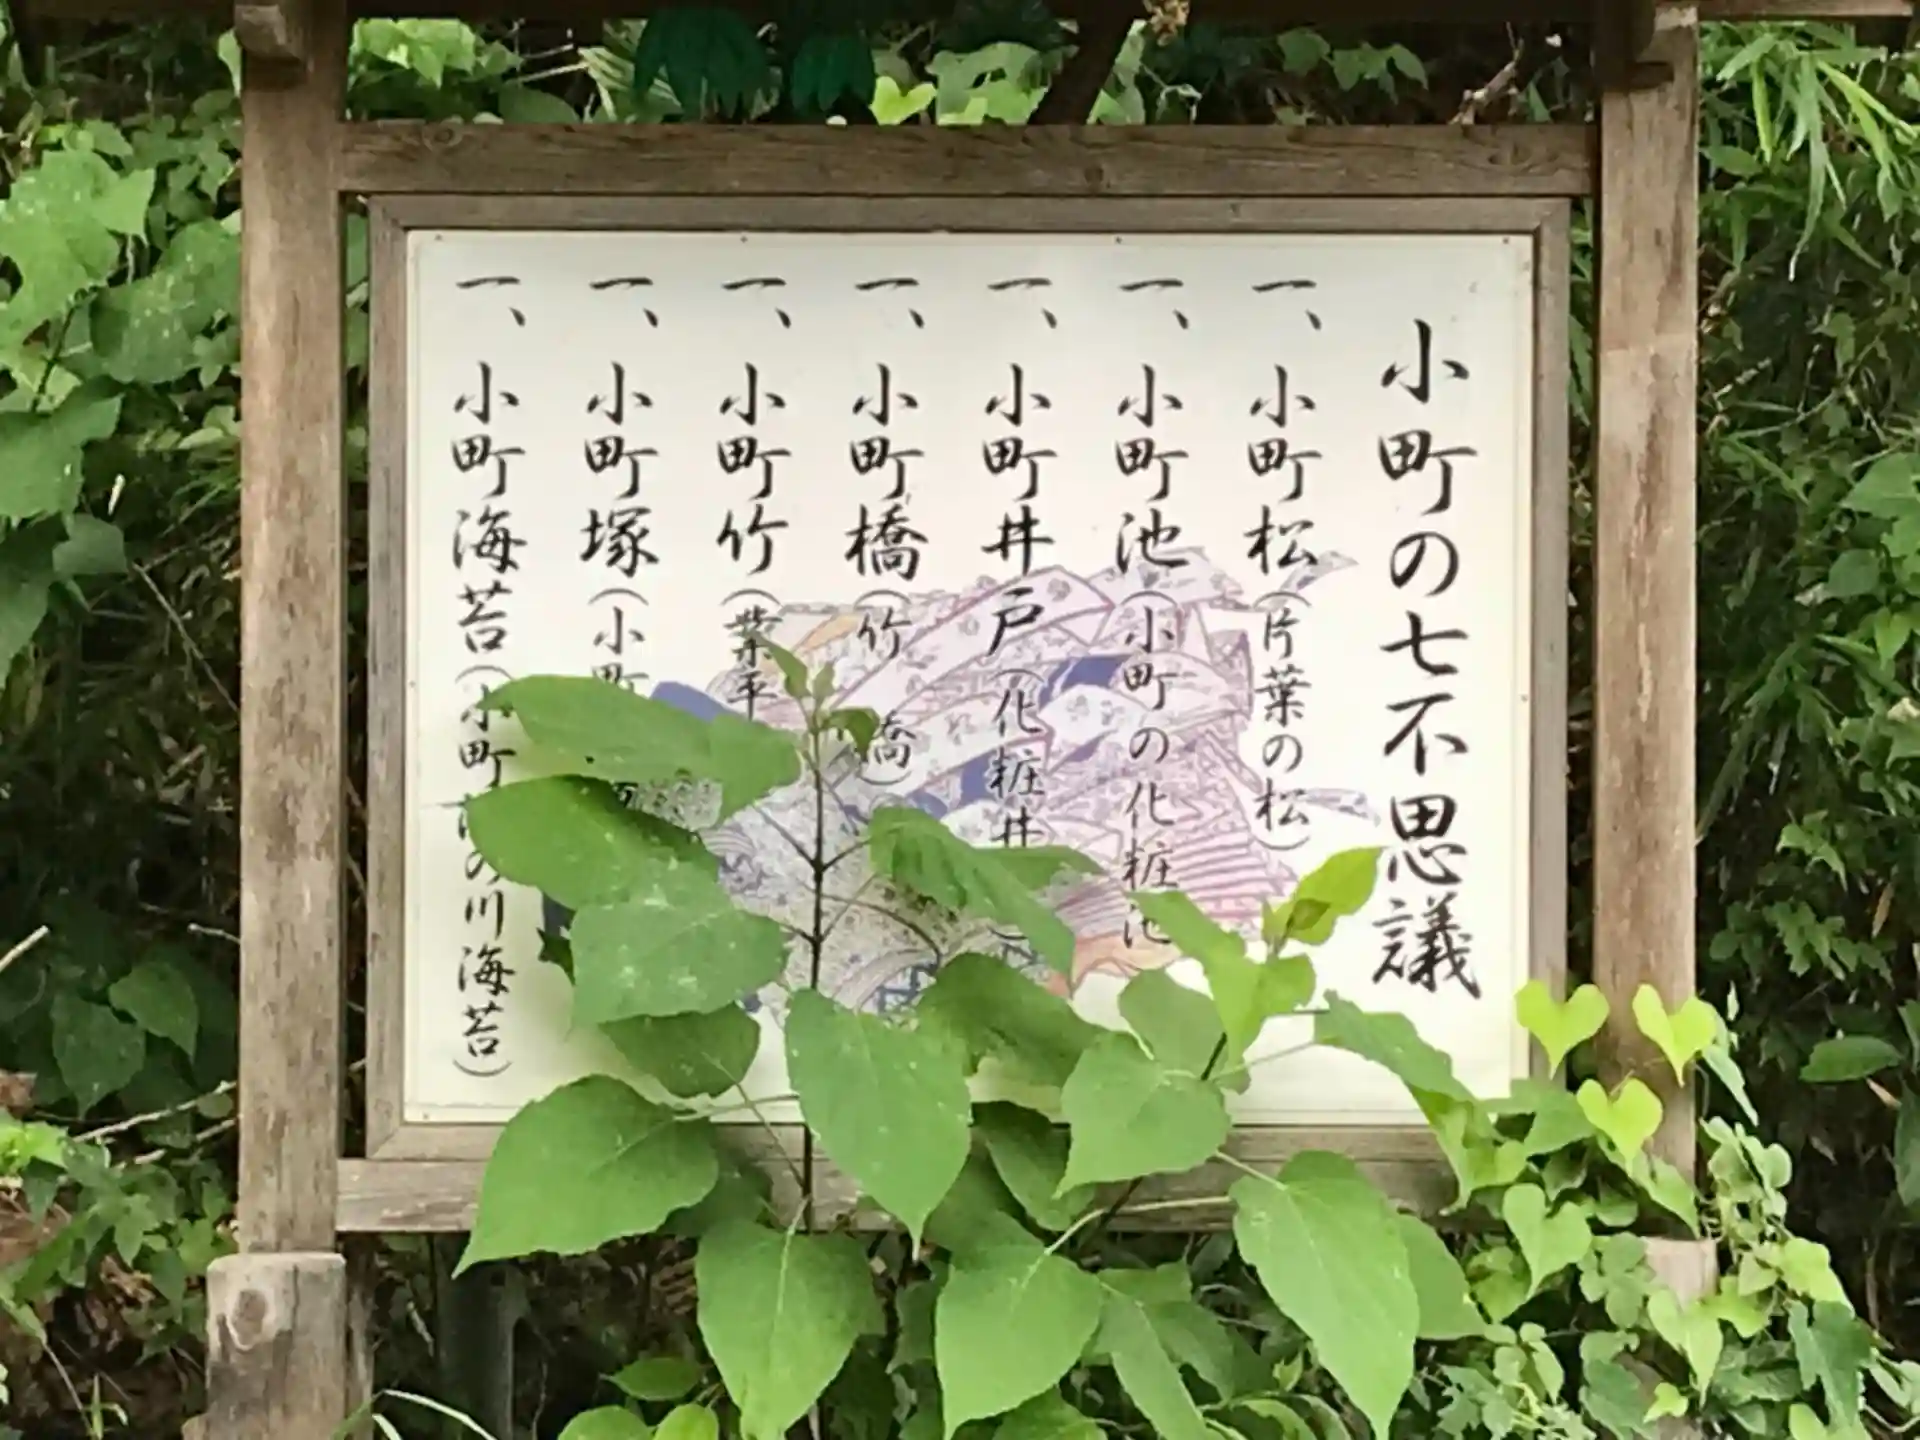 小町の七不思議
一、小町松(片葉の松)
一、小町池(小町の化粧池
一、小町井戸(化粧井
一、小町橋(竹橋)
一、小町竹(業平
一、小町塚(小町
一、小町海苔(小町の川海苔)